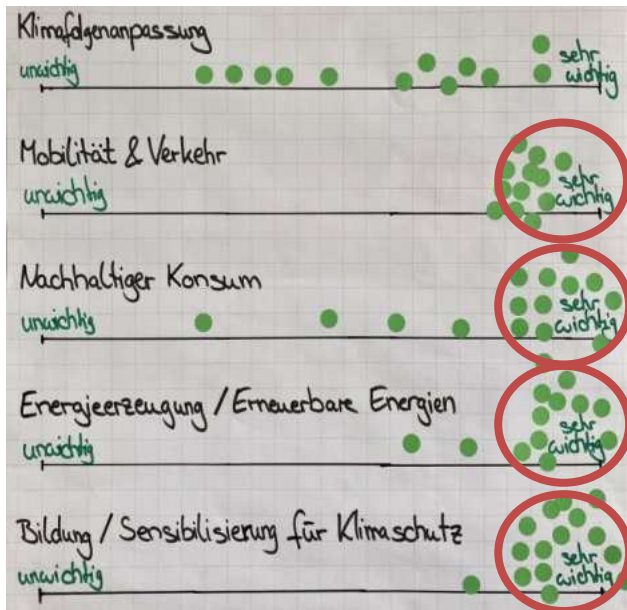 Klimafolgenanpassung
unwichtig
sehr wichtig
Mobilität & Verkehr
unwichtig
sehr wichtig
Nachhaltiger Konsum
unwichtig
sehr wichtig
Energieerzeugung / Erneuerbare Energien
unwichtig
sehr wichtig
Bildung / Sensibilisierung für Klimaschutz
unwichtig
sehr wichtig